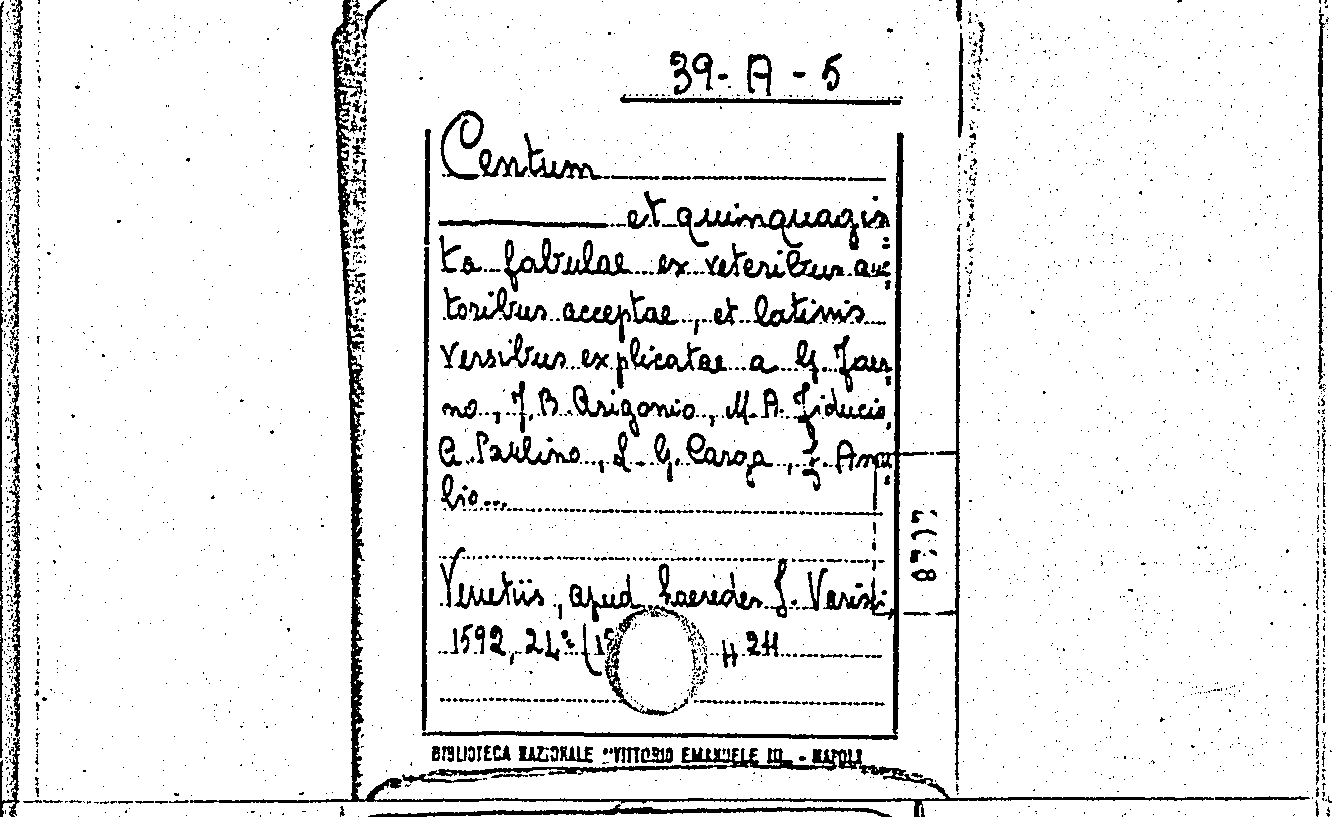 39-A-5
Centum
et quinquagin=
ta fabulae ex veteribus auc=
toribus acceptae, et latinis
versibus explicatae a G. Faer=
no, J. B. Arigonio, M. A. Fiducio,
A. Paulino, L. G. Carga, F.
bio...
Venetiis, apud haeredes F.
1592, 24° 
BIBLIOTECA NAZIONALE "VITTORIO EMANUELE III" - NAPOLI